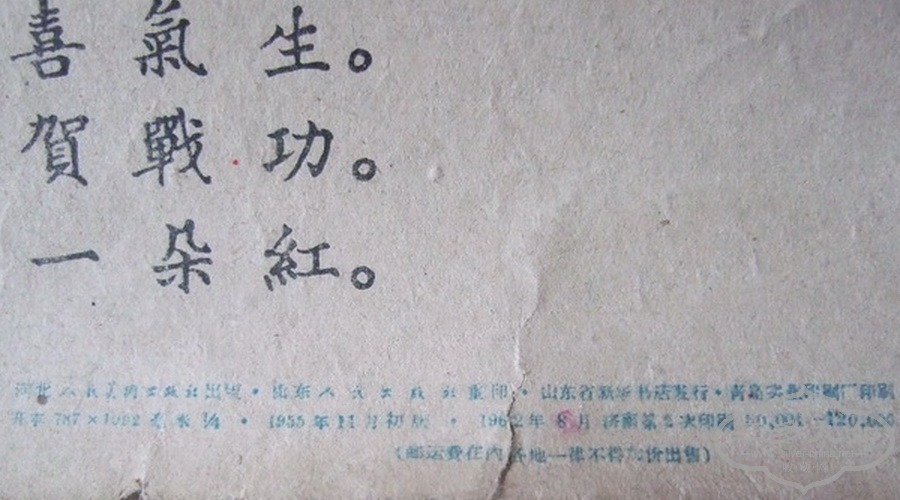 喜氣生。
賀戰功。
一朵紅。
河北人民美術出版社出版・山东人民出版社重印・山东省新华书店发行・青島 印刷厂印刷
开本 787×1092 1/4 ・ 1955年11月初版 ・ 1962年8月济南第2次印刷 50,001—120,000
(邮运费在內 各地一律不得加价出售)